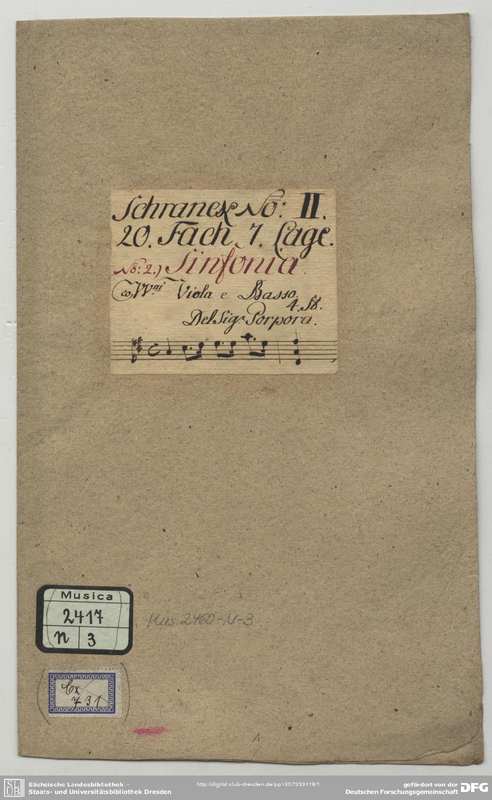 Schranck No: II.
20. Fach 7. Lage.
No: 2.) Sinfonia.
Co VVni Viola e Basso.
4. St.
Del Sig. Porpora.
Musica
2417
n 3
Mus. 2460-N-3
Cx
731
Sächsische Landesbibliothek –
Staats- und Universitätsbibliothek Dresden
gefördert von der
Deutschen Forschungsgemeinschaft DFG